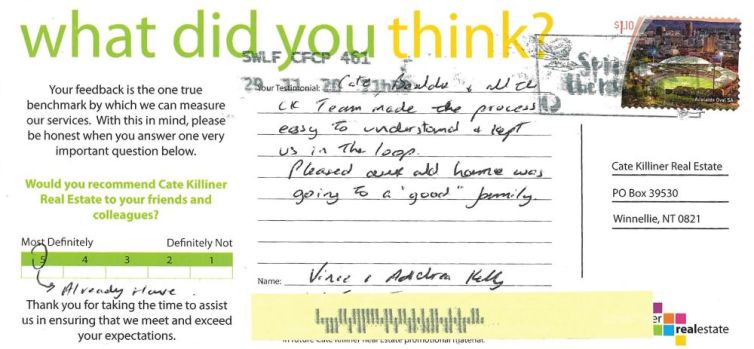 what did you think?
SWLF CFCP 461
$1.10
Adelaide Oval SA
Your feedback is the one true
benchmark by which we can measure
our services. With this in mind, please
be honest when you answer one very
important question below.
Would you recommend Cate Killiner
Real Estate to your friends and
colleagues?
Most Definitely Definitely Not
5 4 3 2 1
Already Have
Thank you for taking the time to assist
us in ensuring that we meet and exceed
your expectations.
Your Testimonial: Cate, & all the
CK Team made the process
easy to understand & kept
us in the loop.
Pleased our old home was
going to a "good" family.
Name: Vince & Kelly
in future Cate Killiner Real Estate promotional material.
Cate Killiner Real Estate
PO Box 39530
Winnellie, NT 0821
er
realestate